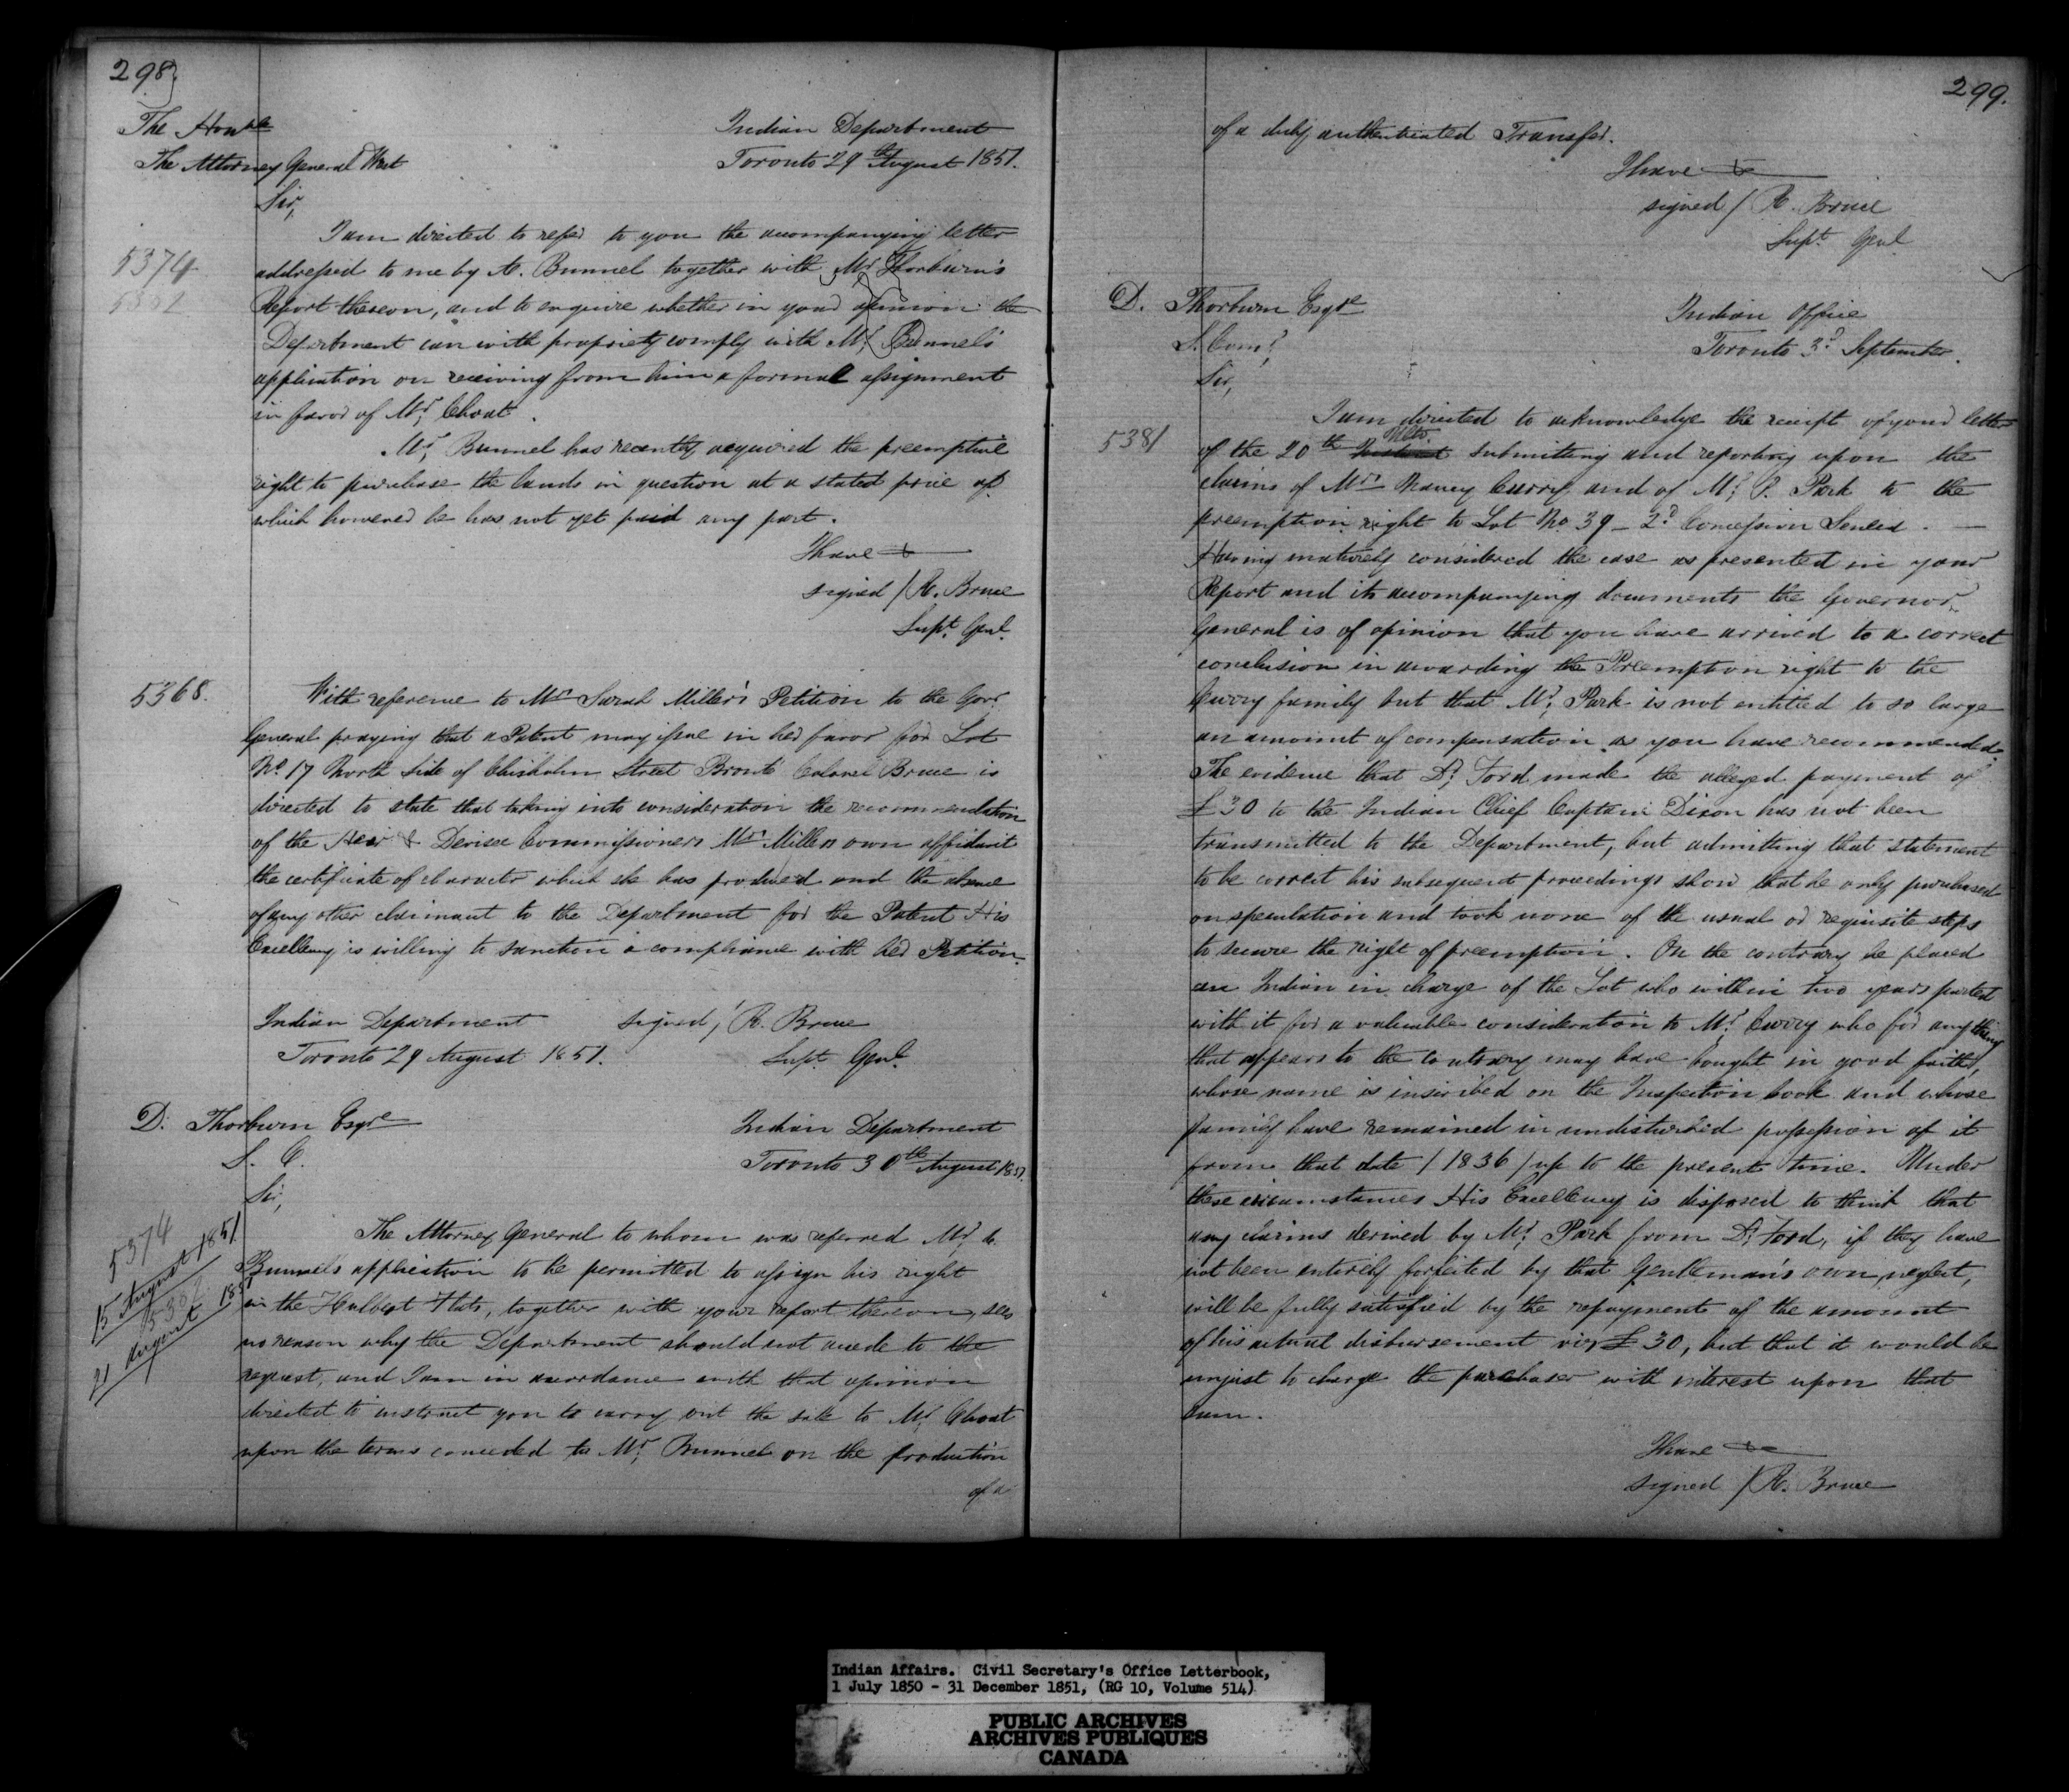 298.
The Honble
The Attorney General West
Indian Department
Toronto 29th August 1851.
Sir,
I am directed to refer to you the accompanying letter
5374
5382
addressed to me by A. Bunnel together with Mr. Thorburn's
Report thereon, and to enquire whether in your opinion the
Department can with propriety comply with Mr. Bunnel's
application on receiving from him a formal assignment
in favor of Mr. Choat.
Mr. Bunnel has recently acquired the preemptive
right to purchase the lands in question at a stated price of
which however he has not yet paid any part.
I have &c
signed / R. Bruce
Supt. Genl.
5368.
With reference to Mrs Sarah Miller's Petition to the Govr
General praying that a Patent may issue in her favor for Lot
No. 17 North Side of Chisholm Street Bronté Colonel Bruce is
directed to state that taking into consideration the recommendation
of the Heir & Devisee Commissioners Mrs Millers own affidavit
the certificate of character which she has produced and the absence
of any other claimant to the Department for the Patent His
Excellency is willing to sanction a compliance with her Petition.
Indian Department
Toronto 29 August 1851.
signed / R. Bruce
Supt. Genl.
D. Thorburn Esqre
S. C.
Indian Department
Toronto 30th August 1851.
Sir,
5374
15 August 1851
5382
21 August 1851
The Attorney General to whom was referred Mr. A.
Bunnells application to be permitted to assign his right
in the Hulbert Flats, together with your report thereon, sees
no reason why the Department should not accede to the
request, and I am in accordance with that opinion
directed to instruct you to carry out the sale to Mr. Choat
upon the terms conceded to Mr. Bunnel on the production
of a
299.
of a duly authenticated Transfer.
I have &c
signed / R. Bruce
Supt. Genl.
D. Thorburn Esqre
S. Comr.
Indian Office
Toronto 3d September.
Sir,
I am directed to acknowledge the receipt of your letter
5381
of the 20th Instant Ulto. submitting and reporting upon the
claims of Mrs Nancy Curry and of Mr. P. Park to the
preemption right to Lot No 39 - 2d Concession Seneca. —
Having maturely considered the case as presented in your
Report and its accompanying documents the Governor
General is of opinion that you have arrived to a correct
conclusion in awarding the Preemption right to the
Curry family but that Mr. Park is not entitled to so large
an amount of compensation as you have recommended.
The evidence that Dr. Ford made the alleged payment of
£30 to the Indian Chief Captain Dixon has not been
transmitted to the Department, but admitting that statement
to be correct his subsequent proceedings show that he only purchased
on speculation and took none of the usual or requisite steps
to secure the right of preemption. On the contrary he placed
an Indian in charge of the Lot who within two years parted
with it for a valuable consideration to Mr. Curry who for anything
that appears to the contrary may have bought in good faith,
whose name is inscribed on the Inspection book and whose
family have remained in undisturbed possession of it
from that date / 1836 / up to the present time. Under
these circumstances His Excellency is disposed to think that
any claims derived by Mr. Park from Dr. Ford, if they have
not been entirely forfeited by that Gentleman's own neglect,
will be fully satisfied by the repayment of the amount
of his actual disbursement viz £30, but that it would be
unjust to charge the purchaser with interest upon that
sum.
I have &c
signed / R. Bruce
Indian Affairs. Civil Secretary's Office Letterbook,
1 July 1850 - 31 December 1851, (RG 10, Volume 514)
PUBLIC ARCHIVES
ARCHIVES PUBLIQUES
CANADA